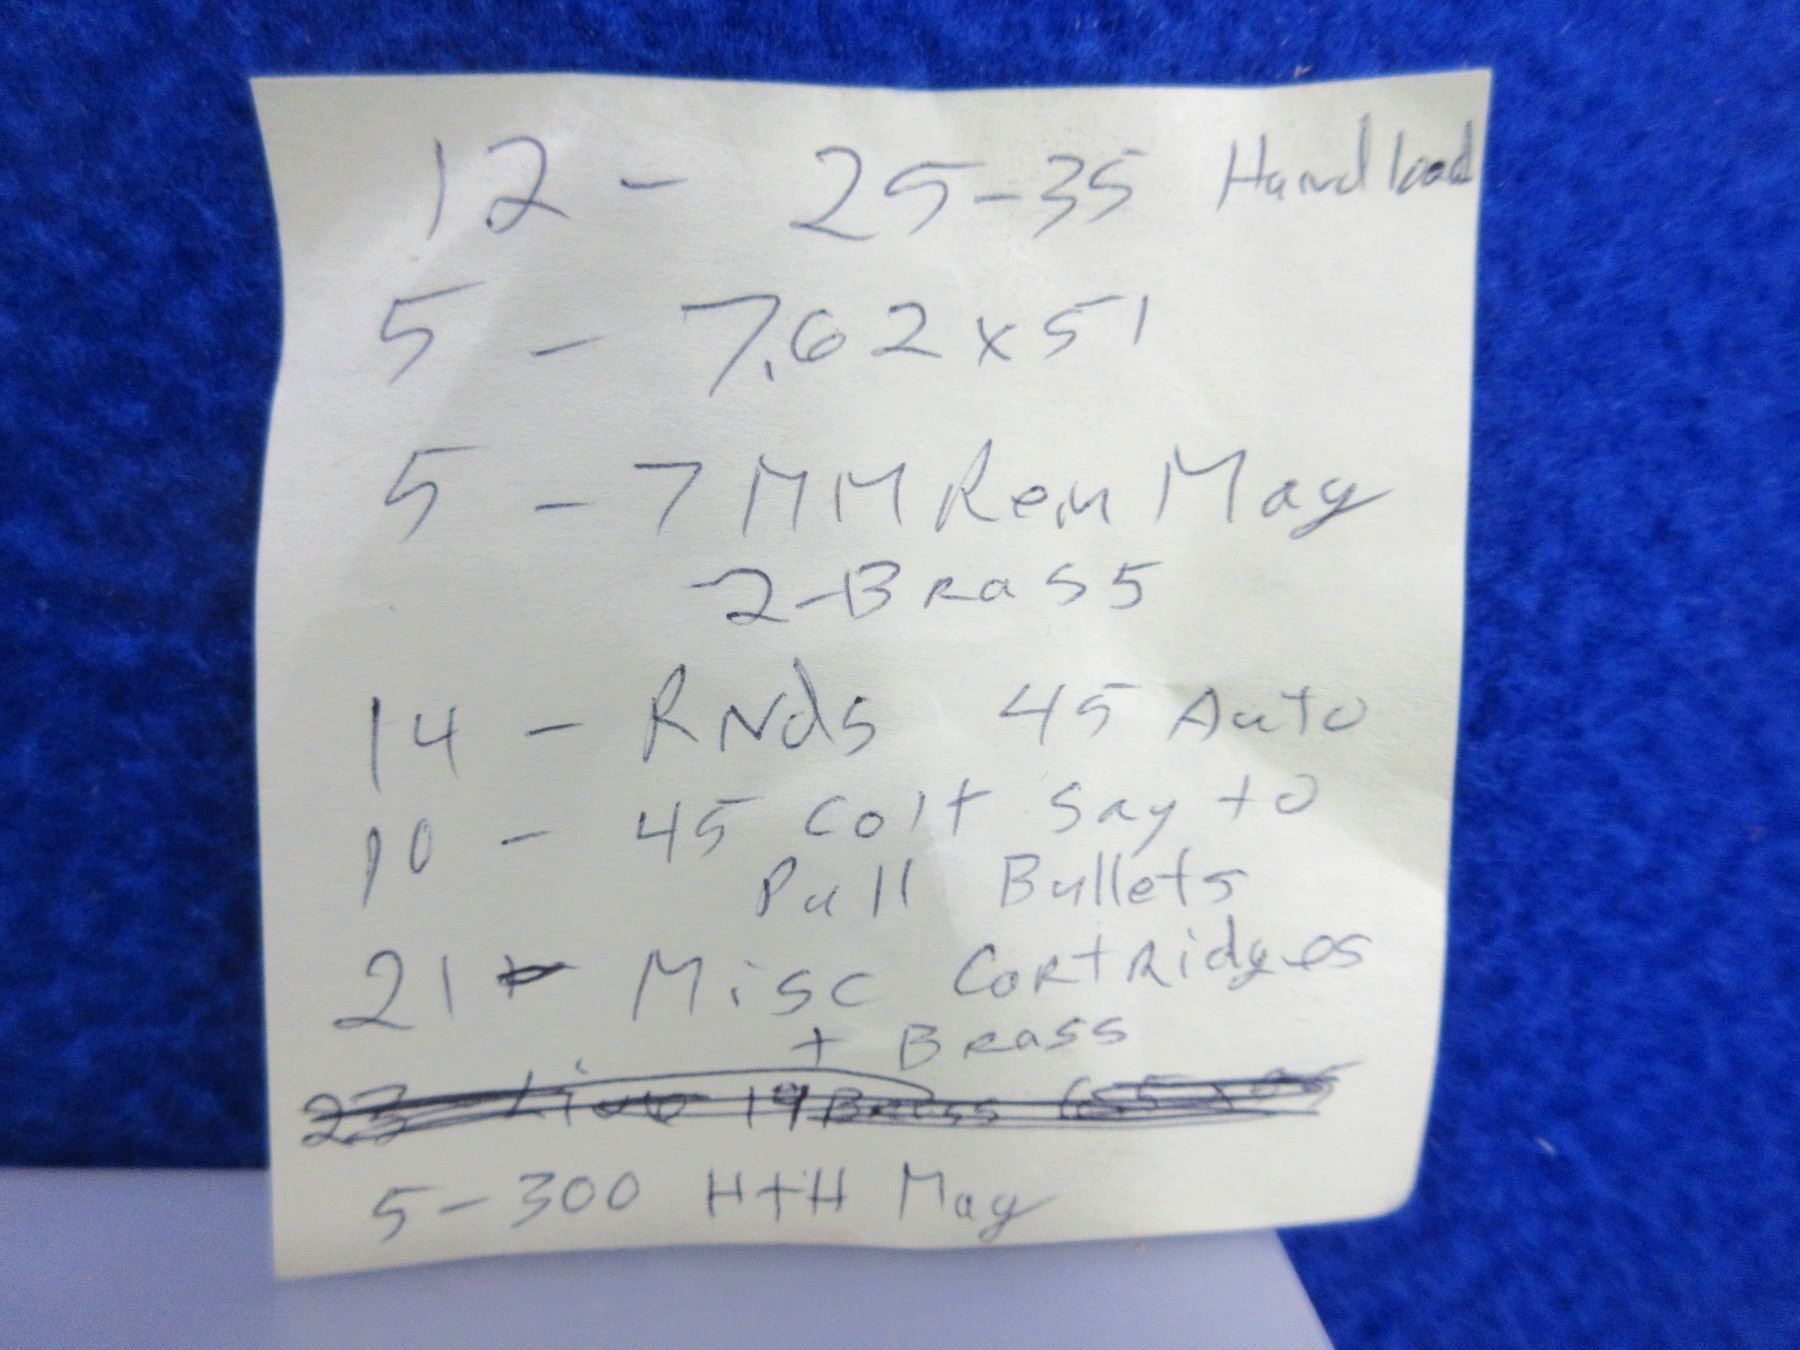 12 - 25-35 Handload
5 - 7.62x51
5 - 7MM Rem Mag
2-Brass
14 - RNds 45 Auto
10 - 45 Colt Say to
Pull Bullets
21 - Misc Cartridges
+ Brass
23 Live 14 Brass
5-300 H+H Mag